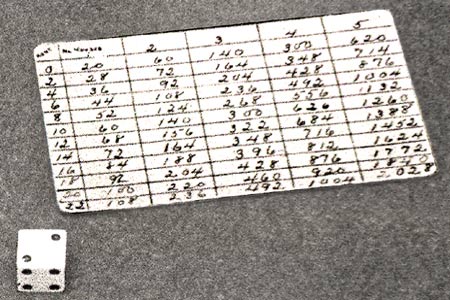 NUMBER 2 3 4 5
0 20 60 140 300 620
2 28 72 164 348 714
4 36 92 204 428 876
6 44 108 236 492 1004
8 52 124 268 556 1132
10 60 140 300 626 1260
12 68 156 322 684 1388
14 72 164 348 716 1452
16 84 188 396 812 1624
18 92 204 428 876 1772
20 100 220 460 920 1840
22 108 236 492 1004 2028